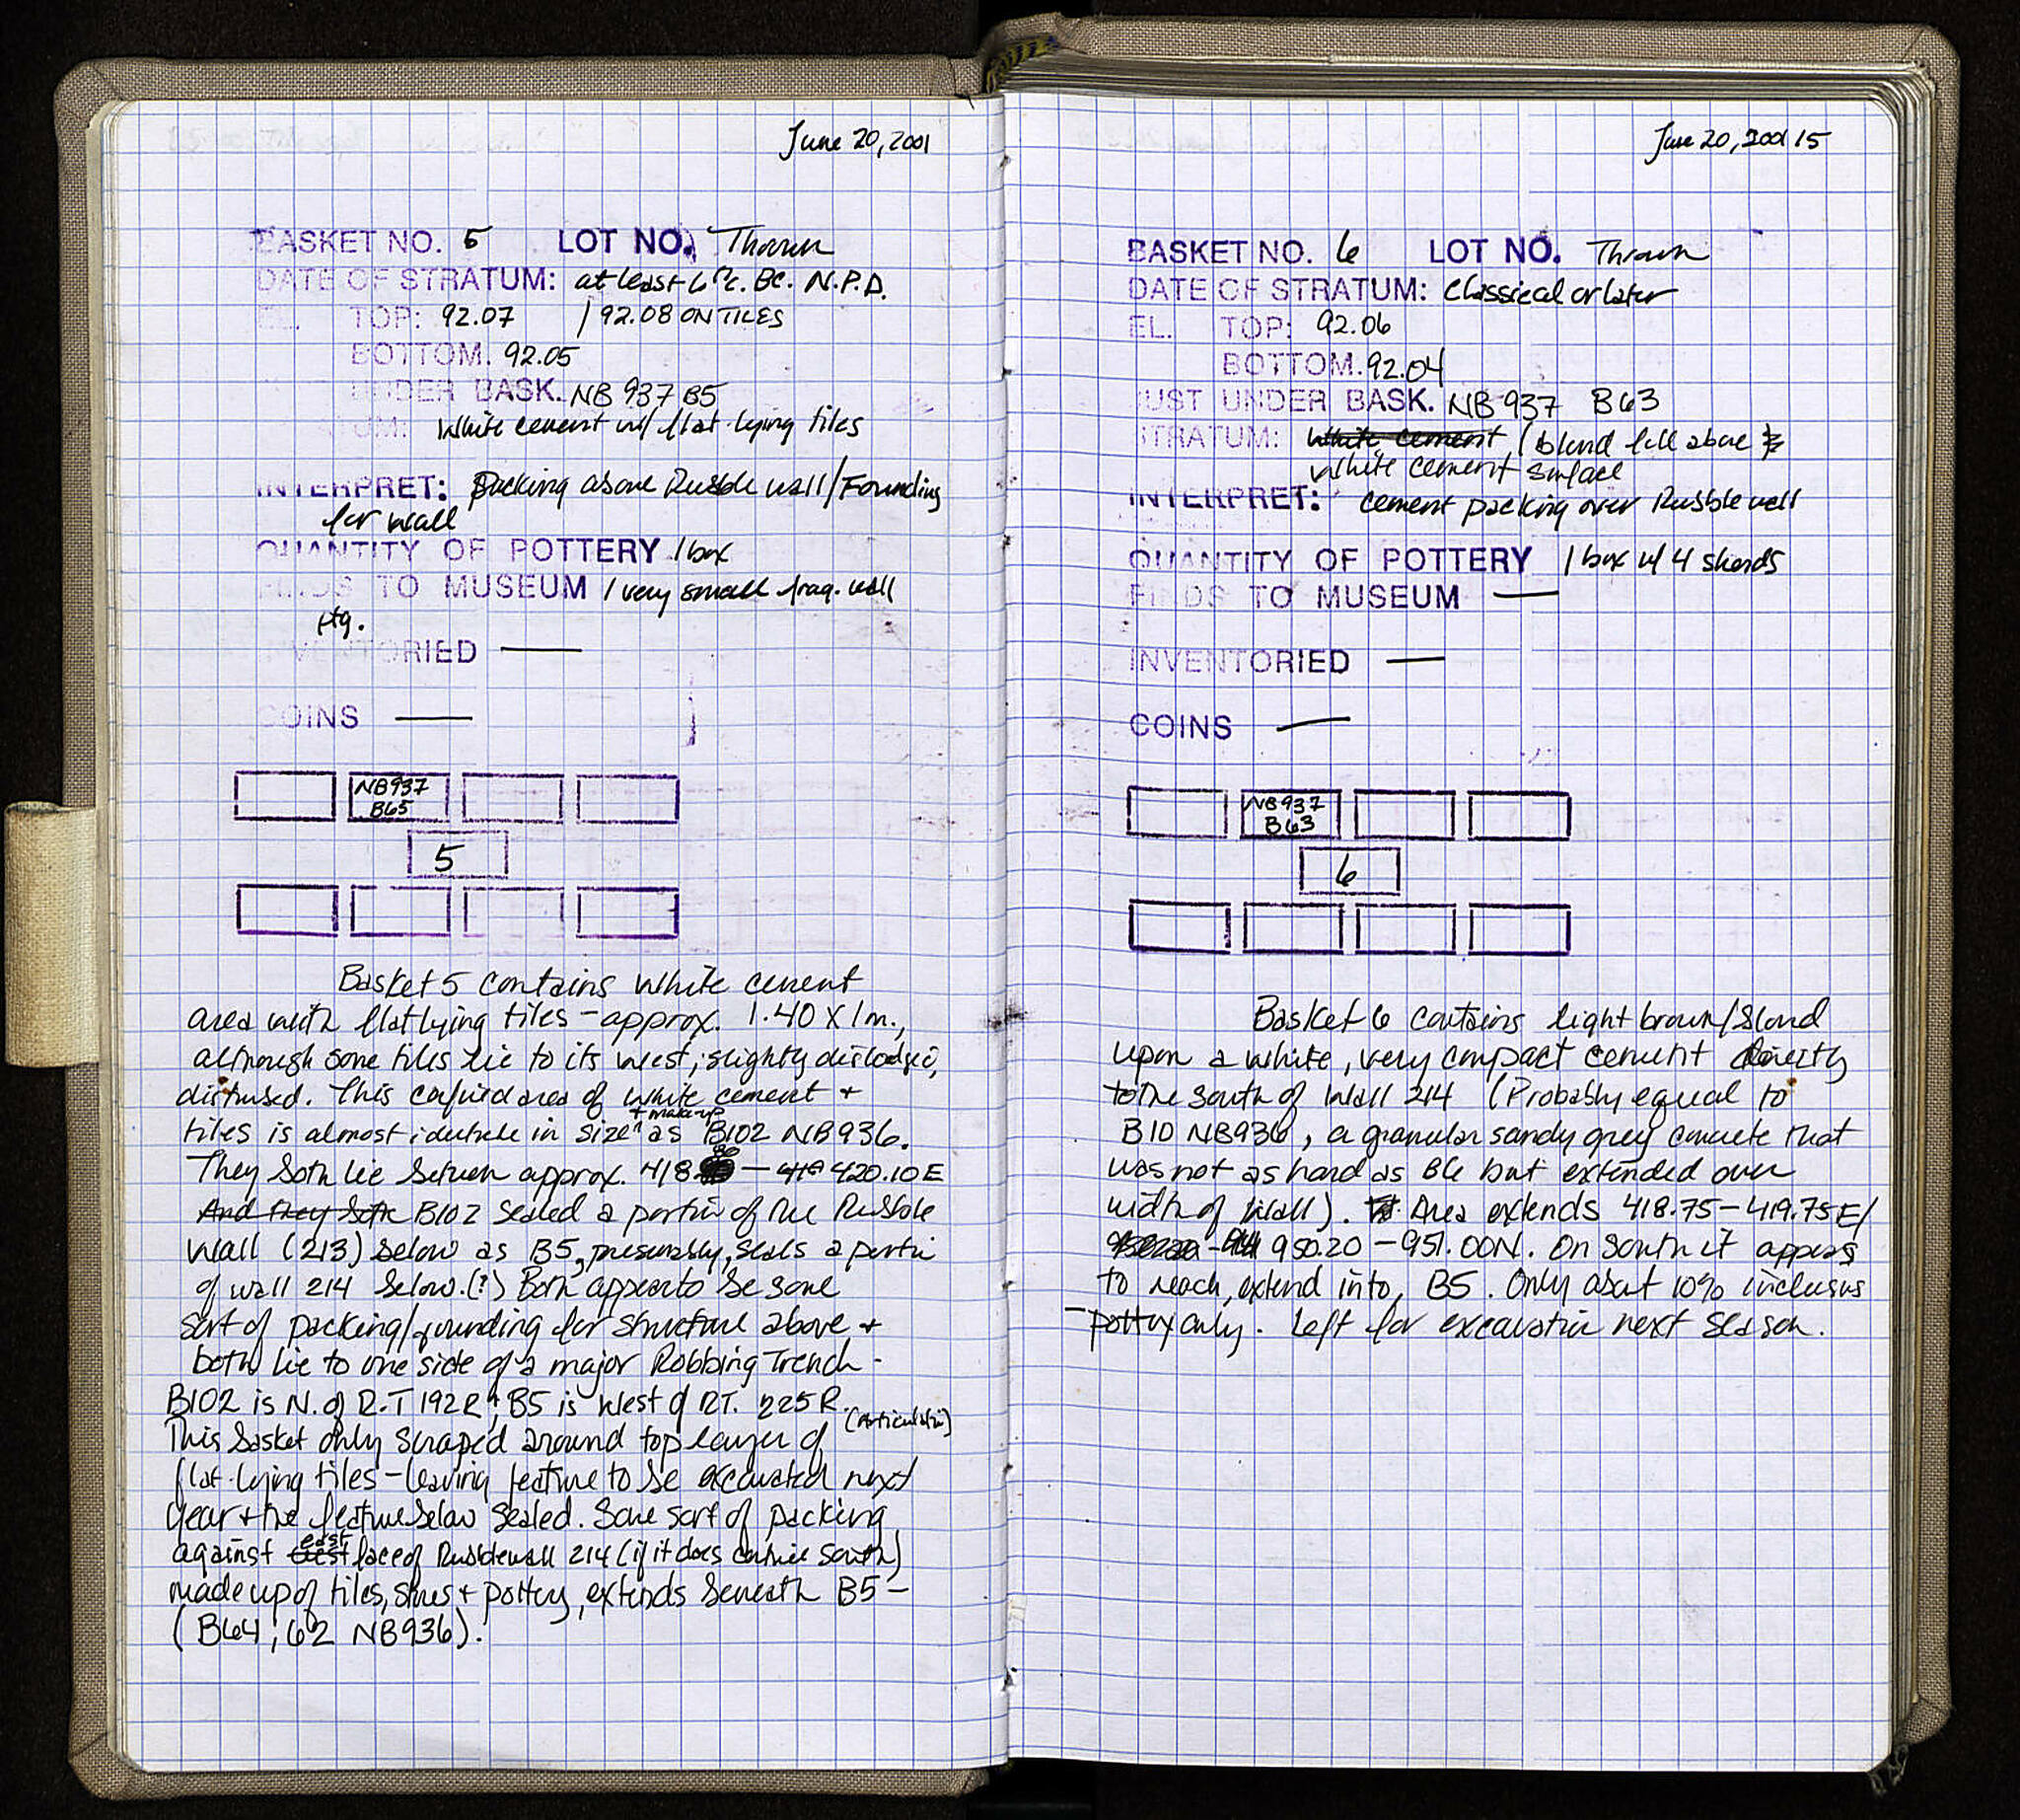 June 20, 2001
BASKET NO. 5 LOT NO. Thrown
DATE OF STRATUM: at least 6th c. BC. N.P.D.
EL. TOP: 92.07 / 92.08 ON TILES
BOTTOM. 92.05
UNDER BASK. NB 937 B5
UM: White cement w/ flat-lying tiles
INTERPRET: Packing above Rubble wall/Founding
for wall
QUANTITY OF POTTERY 1 box
FINDS TO MUSEUM 1 very small frag. wall
ptg.
INVENTORIED —
COINS —
NB937
B65
5
Basket 5 contains white cement
area with flat lying tiles - approx. 1.40 X 1m.,
although some tiles lie to its west, slightly dislodged,
disturbed. This confined area of white cement +
tiles is almost identical in size + make-up as B102 NB936.
They both lie between approx. 418.80 — 420.10 E
And they both B102 sealed a portion of the Rubble
Wall (213) below as B5, presumably, seals a portion
of wall 214 below.(?) Both appear to be some
sort of packing/founding for structure above +
both lie to one side of a major Robbing Trench -
B102 is N. of R.T 192R + B5 is West of RT. 225R.
This basket only scraped around top layer of (articulating)
flat-lying tiles - leaving feature to be excavated next
year + the feature below sealed. Some sort of packing
against west east face of Rubble wall 214 (if it does continue South)
made up of tiles, stones + pottery, extends beneath B5 —
(B64; 62 NB936).
June 20, 2001 15
BASKET NO. 6 LOT NO. Thrown
DATE OF STRATUM: Classical or later
EL. TOP: 92.06
BOTTOM. 92.04
JUST UNDER BASK. NB 937 B63
STRATUM: White cement / blond fill above
White cement surface
INTERPRET: cement packing over Rubble wall
QUANTITY OF POTTERY 1 box w/ 4 sherds
FINDS TO MUSEUM —
INVENTORIED —
COINS —
NB937
B63
6
Basket 6 contains light brown/blond
upon a white, very compact cement directly
to the south of Wall 214 (Probably equal to
B10 NB936, a granular sandy grey concrete that
was not as hard as B6 but extended over
width of Wall). Area extends 418.75 — 419.75 E/
950.20 — 951.00N. On South it appears
to reach, extend into, B5. Only about 10% inclusions
— pottery only. Left for excavation next season.